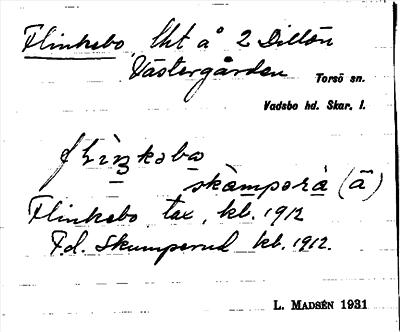 Flinkebo, lht å 2 Dillön
Västergården
Torsö sn.
Vadsbo hd. Skar. l.
skàmpərù (ā̀)
Flinkebo tax, kb. 1912
F.d. Skumperud kb. 1912.
L. MADSÉN 1931